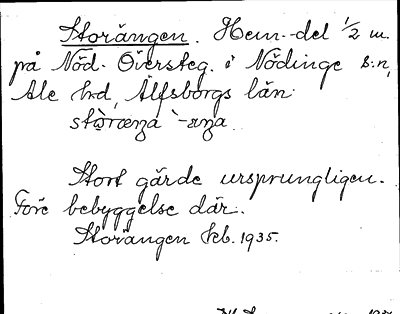 Storängen. Hem.-del 1/2 m.
på Nöd. Översteg. i Nödinge s:n,
Ale hd, Älfsborgs län.
Stort gärde ursprungligen.
Före bebyggelse där.
Storängen Feb. 1935.